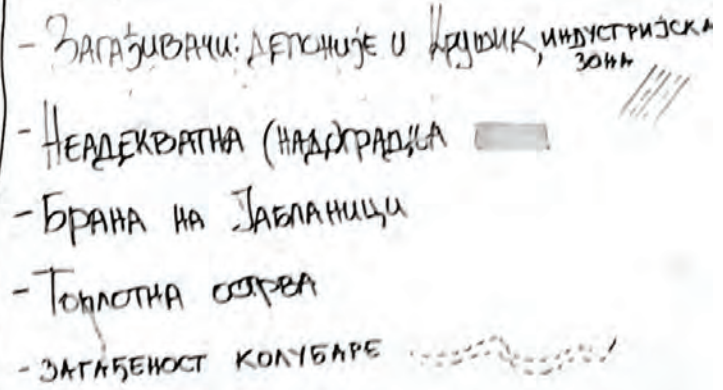 - ЗАГАЂИВАЧИ: ДЕПОНИЈЕ И КРУШИК, ИНДУСТРИЈСКА
ЗОНА
- НЕАДЕКВАТНА (НАДО)ГРАДЊА
- БРАНА НА ЈАБЛАНИЦИ
- ТОПЛОТНА ОСТРВА
- ЗАГАЂЕНОСТ КОЛУБАРЕ